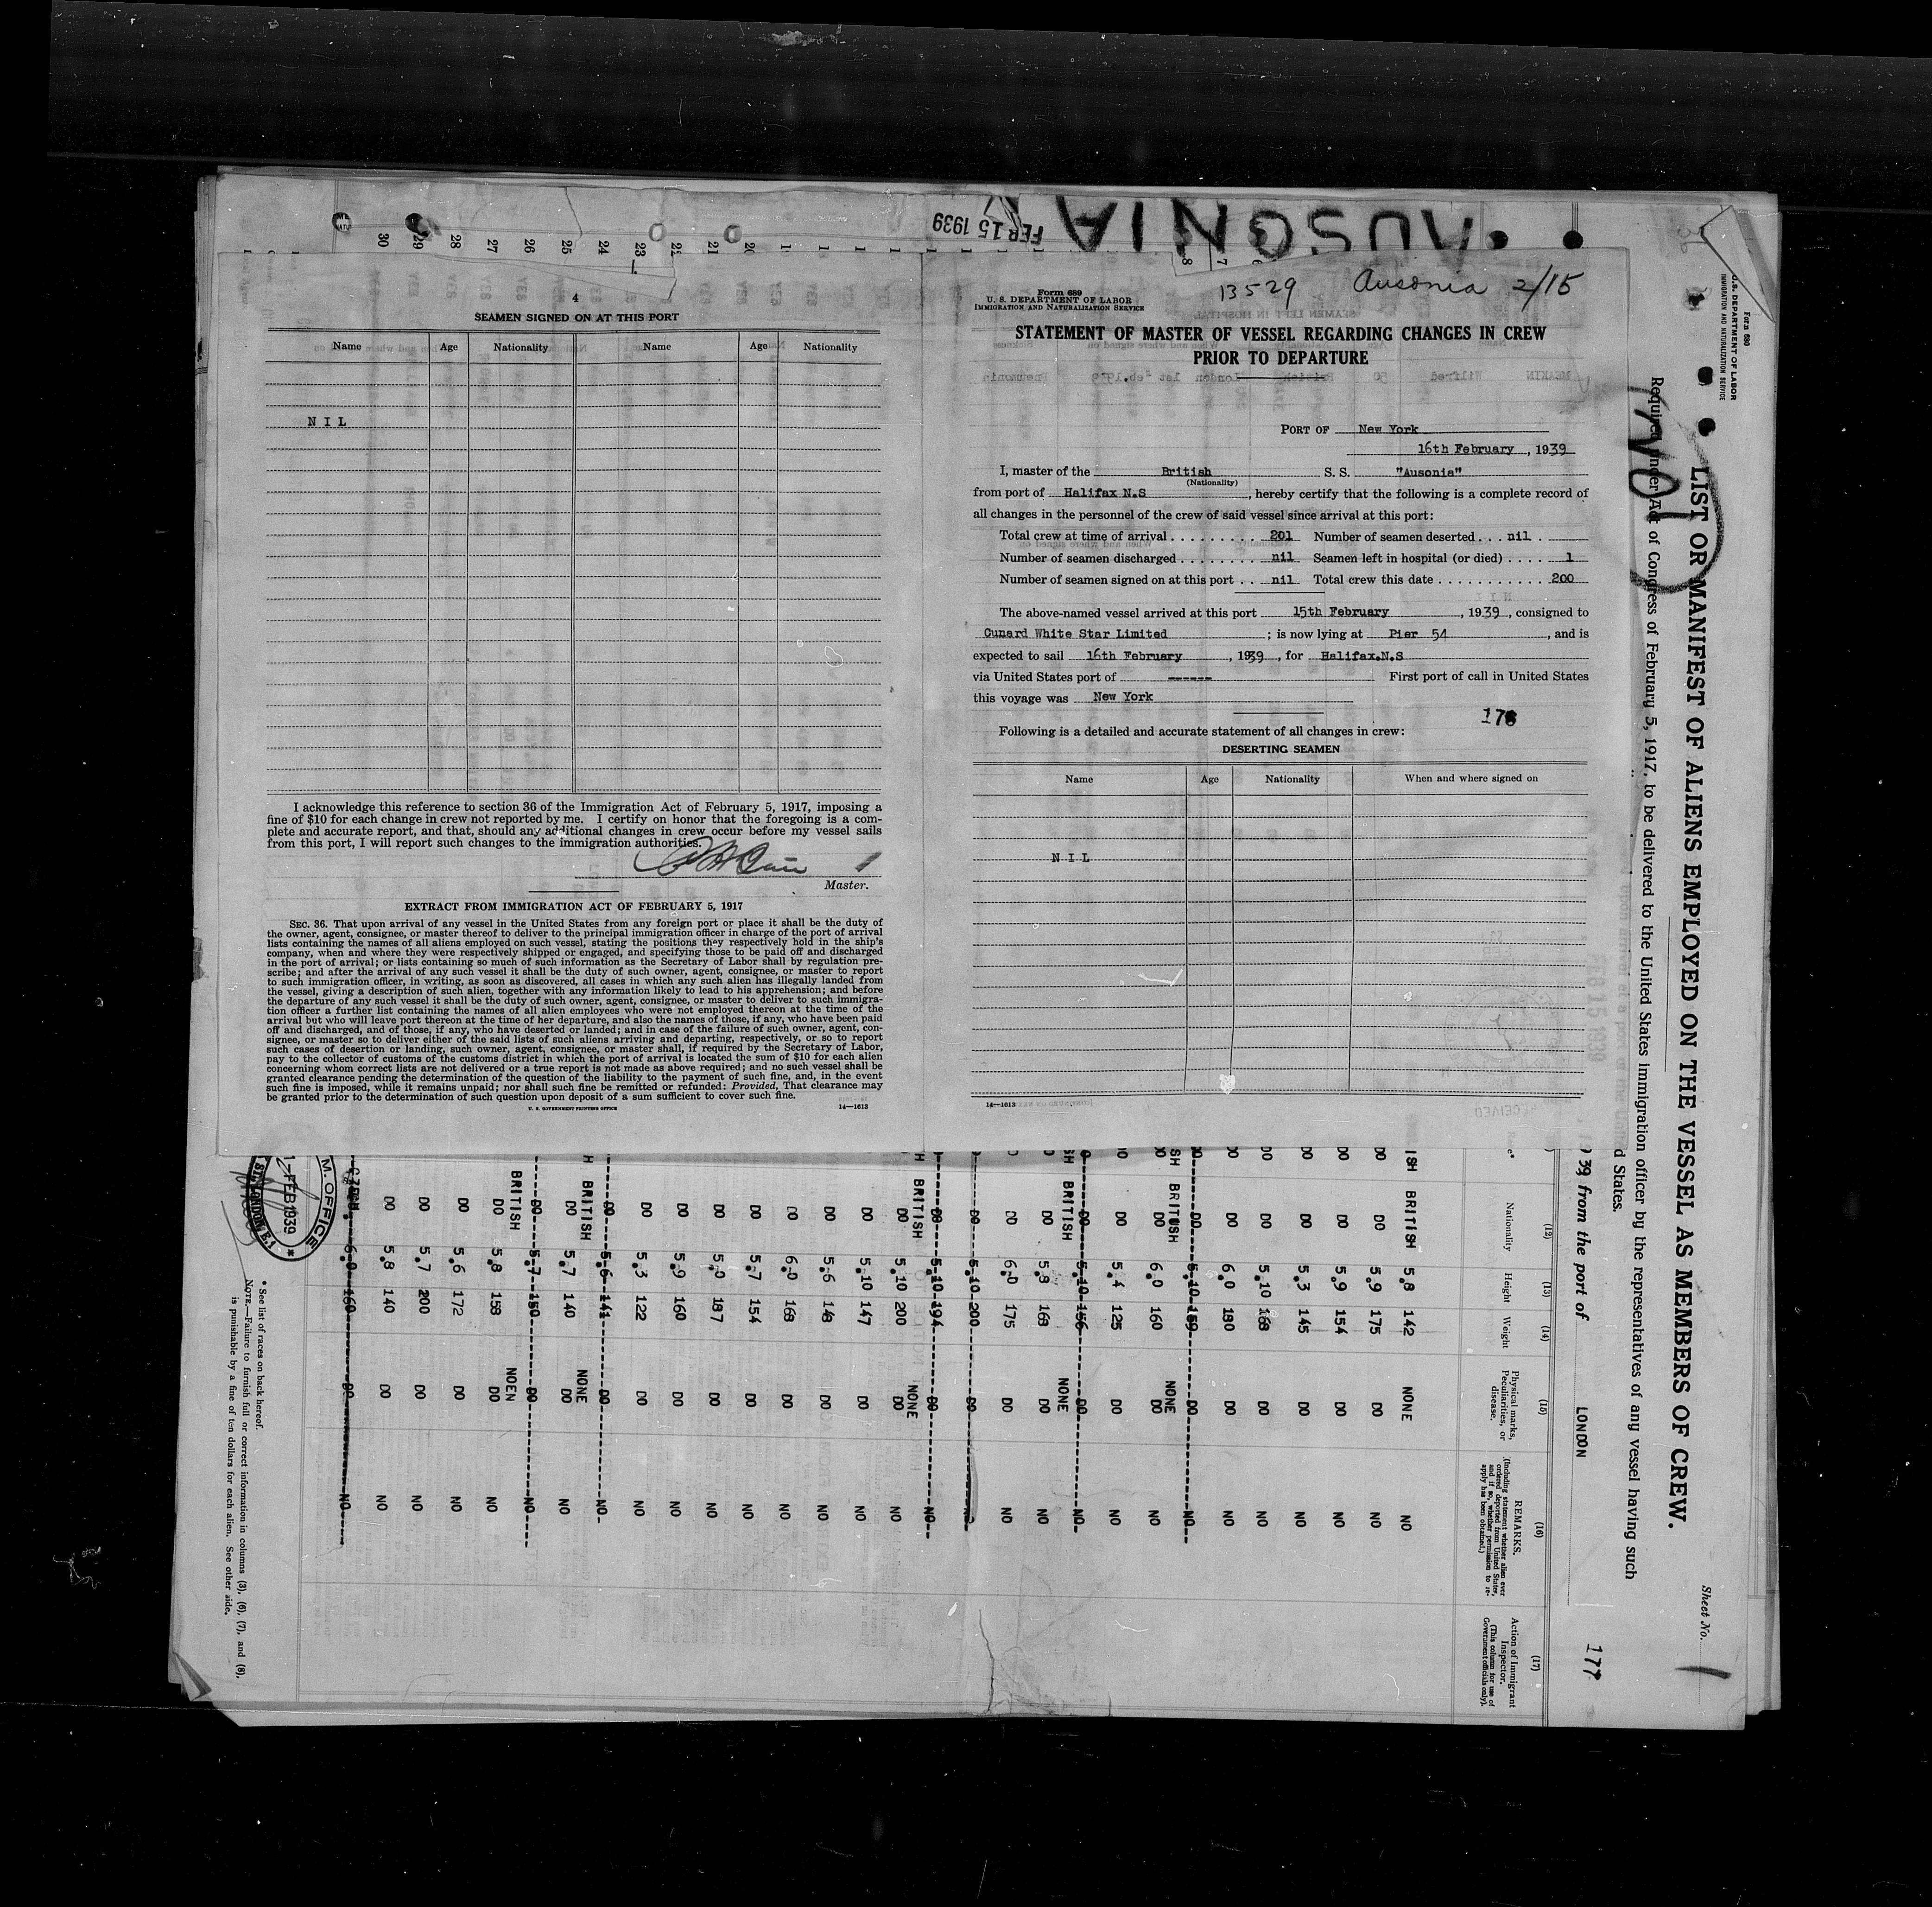 AUSONIA
FEB 15 1939
4
SEAMEN SIGNED ON AT THIS PORT
Name Age Nationality Name Age Nationality
NIL
I acknowledge this reference to section 36 of the Immigration Act of February 5, 1917, imposing a
fine of $10 for each change in crew not reported by me. I certify on honor that the foregoing is a com-
plete and accurate report, and that, should any additional changes in crew occur before my vessel sails
from this port, I will report such changes to the immigration authorities.
Master.
EXTRACT FROM IMMIGRATION ACT OF FEBRUARY 5, 1917
SEC. 36. That upon arrival of any vessel in the United States from any foreign port or place it shall be the duty of
the owner, agent, consignee, or master thereof to deliver to the principal immigration officer in charge of the port of arrival
lists containing the names of all aliens employed on such vessel, stating the positions they respectively hold in the ship's
company, when and where they were respectively shipped or engaged, and specifying those to be paid off and discharged
in the port of arrival; or lists containing so much of such information as the Secretary of Labor shall by regulation pre-
scribe; and after the arrival of any such vessel it shall be the duty of such owner, agent, consignee, or master to report
to such immigration officer, in writing, as soon as discovered, all cases in which any such alien has illegally landed from
the vessel, giving a description of such alien, together with any information likely to lead to his apprehension; and before
the departure of any such vessel it shall be the duty of such owner, agent, consignee, or master to deliver to such immigra-
tion officer a further list containing the names of all alien employees who were not employed thereon at the time of the
arrival but who will leave port thereon at the time of her departure, and also the names of those, if any, who have been paid
off and discharged, and of those, if any, who have deserted or landed; and in case of the failure of such owner, agent, con-
signee, or master so to deliver either of the said lists of such aliens arriving and departing, respectively, or so to report
such cases of desertion or landing, such owner, agent, consignee, or master shall, if required by the Secretary of Labor,
pay to the collector of customs of the customs district in which the port of arrival is located the sum of $10 for each alien
concerning whom correct lists are not delivered or a true report is not made as above required; and no such vessel shall be
granted clearance pending the determination of the question of the liability to the payment of such fine, and, in the event
such fine is imposed, while it remains unpaid; nor shall such fine be remitted or refunded: Provided, That clearance may
be granted prior to the determination of such question upon deposit of a sum sufficient to cover such fine.
U. S. GOVERNMENT PRINTING OFFICE 14—1613
13529 Ausonia 2/15
Form 689
U. S. DEPARTMENT OF LABOR
IMMIGRATION AND NATURALIZATION SERVICE
STATEMENT OF MASTER OF VESSEL REGARDING CHANGES IN CREW
PRIOR TO DEPARTURE
PORT OF New York
16th February, 1939
I, master of the British S. S. "Ausonia"
(Nationality)
from port of Halifax N.S, hereby certify that the following is a complete record of
all changes in the personnel of the crew of said vessel since arrival at this port:
Total crew at time of arrival 201 Number of seamen deserted nil
Number of seamen discharged nil Seamen left in hospital (or died) 1
Number of seamen signed on at this port nil Total crew this date 200
The above-named vessel arrived at this port 15th February, 1939, consigned to
Cunard White Star Limited; is now lying at Pier 54, and is
expected to sail 16th February, 1939, for Halifax.N.S
via United States port of ------ First port of call in United States
this voyage was New York
176
Following is a detailed and accurate statement of all changes in crew:
DESERTING SEAMEN
Name Age Nationality When and where signed on
NIL
14—1613
Form 680
U.S. DEPARTMENT OF LABOR
IMMIGRATION AND NATURALIZATION SERVICE
LIST OR MANIFEST OF ALIENS EMPLOYED ON THE VESSEL AS MEMBERS OF CREW.
Sheet No.
Required under Act of Congress of February 5, 1917, to be delivered to the United States immigration officer by the representatives of any vessel having such
d States.
39 from the port of LONDON
177
(12) (13) (14) (15) (16) (17)
Nationality Height Weight Physical marks, Peculiarities, or disease. REMARKS. (Including statement whether alien ever ordered deported from United States, and if so, whether permission to re-apply has been obtained.) Action of Immigrant Inspector. (This column for use of Government officials only).
ISH BRITISH 5.8 142 NONE NO
DO DO 5.9 175 DO NO
DO DO 5.9 154 DO NO
DO DO 5.3 145 DO NO
DO DO 5.10 168 DO NO
DO DO 6.0 180 DO NO
DO 5.10 159 DO NO
SH BRITUSH NONE
DO DO 6.0 160 DO NO
DO DO 5.4 125 DO NO
DO 5.10 156 DO NO
SH BRITISH NONE
DO 5.8 168 DO NO
DO 6.0 175 DO NO
DO 5.10 200 DO NO
DO 5.10 194 DO NO
H BRITISH NONE
DO 5.10 200 DO NO
DO 5.10 147 DO NO
DO 5.6 148 DO NO
DO 6.0 168 DO NO
DO 5.7 154 DO NO
DO 5.0 187 DO NO
DO 5.9 160 DO NO
DO 5.3 122 DO NO
DO 5.6 141 DO NO
H BRITISH NONE
DO 5.7 140 DO NO
DO 5.7 150 DO NO
BRITISH NOEN
DO 5.8 158 DO NO
DO 5.6 172 DO NO
DO 5.7 200 DO NO
DO 5.8 140 DO NO
CZECH. 6.0 160 DO NO
M. OFFICE
1-FEB 1939
ST. LONDON E.1
* See list of races on back hereof.
NOTE.—Failure to furnish full or correct information in columns (3), (6), (7), and (8),
is punishable by a fine of ten dollars for each alien. See other side.